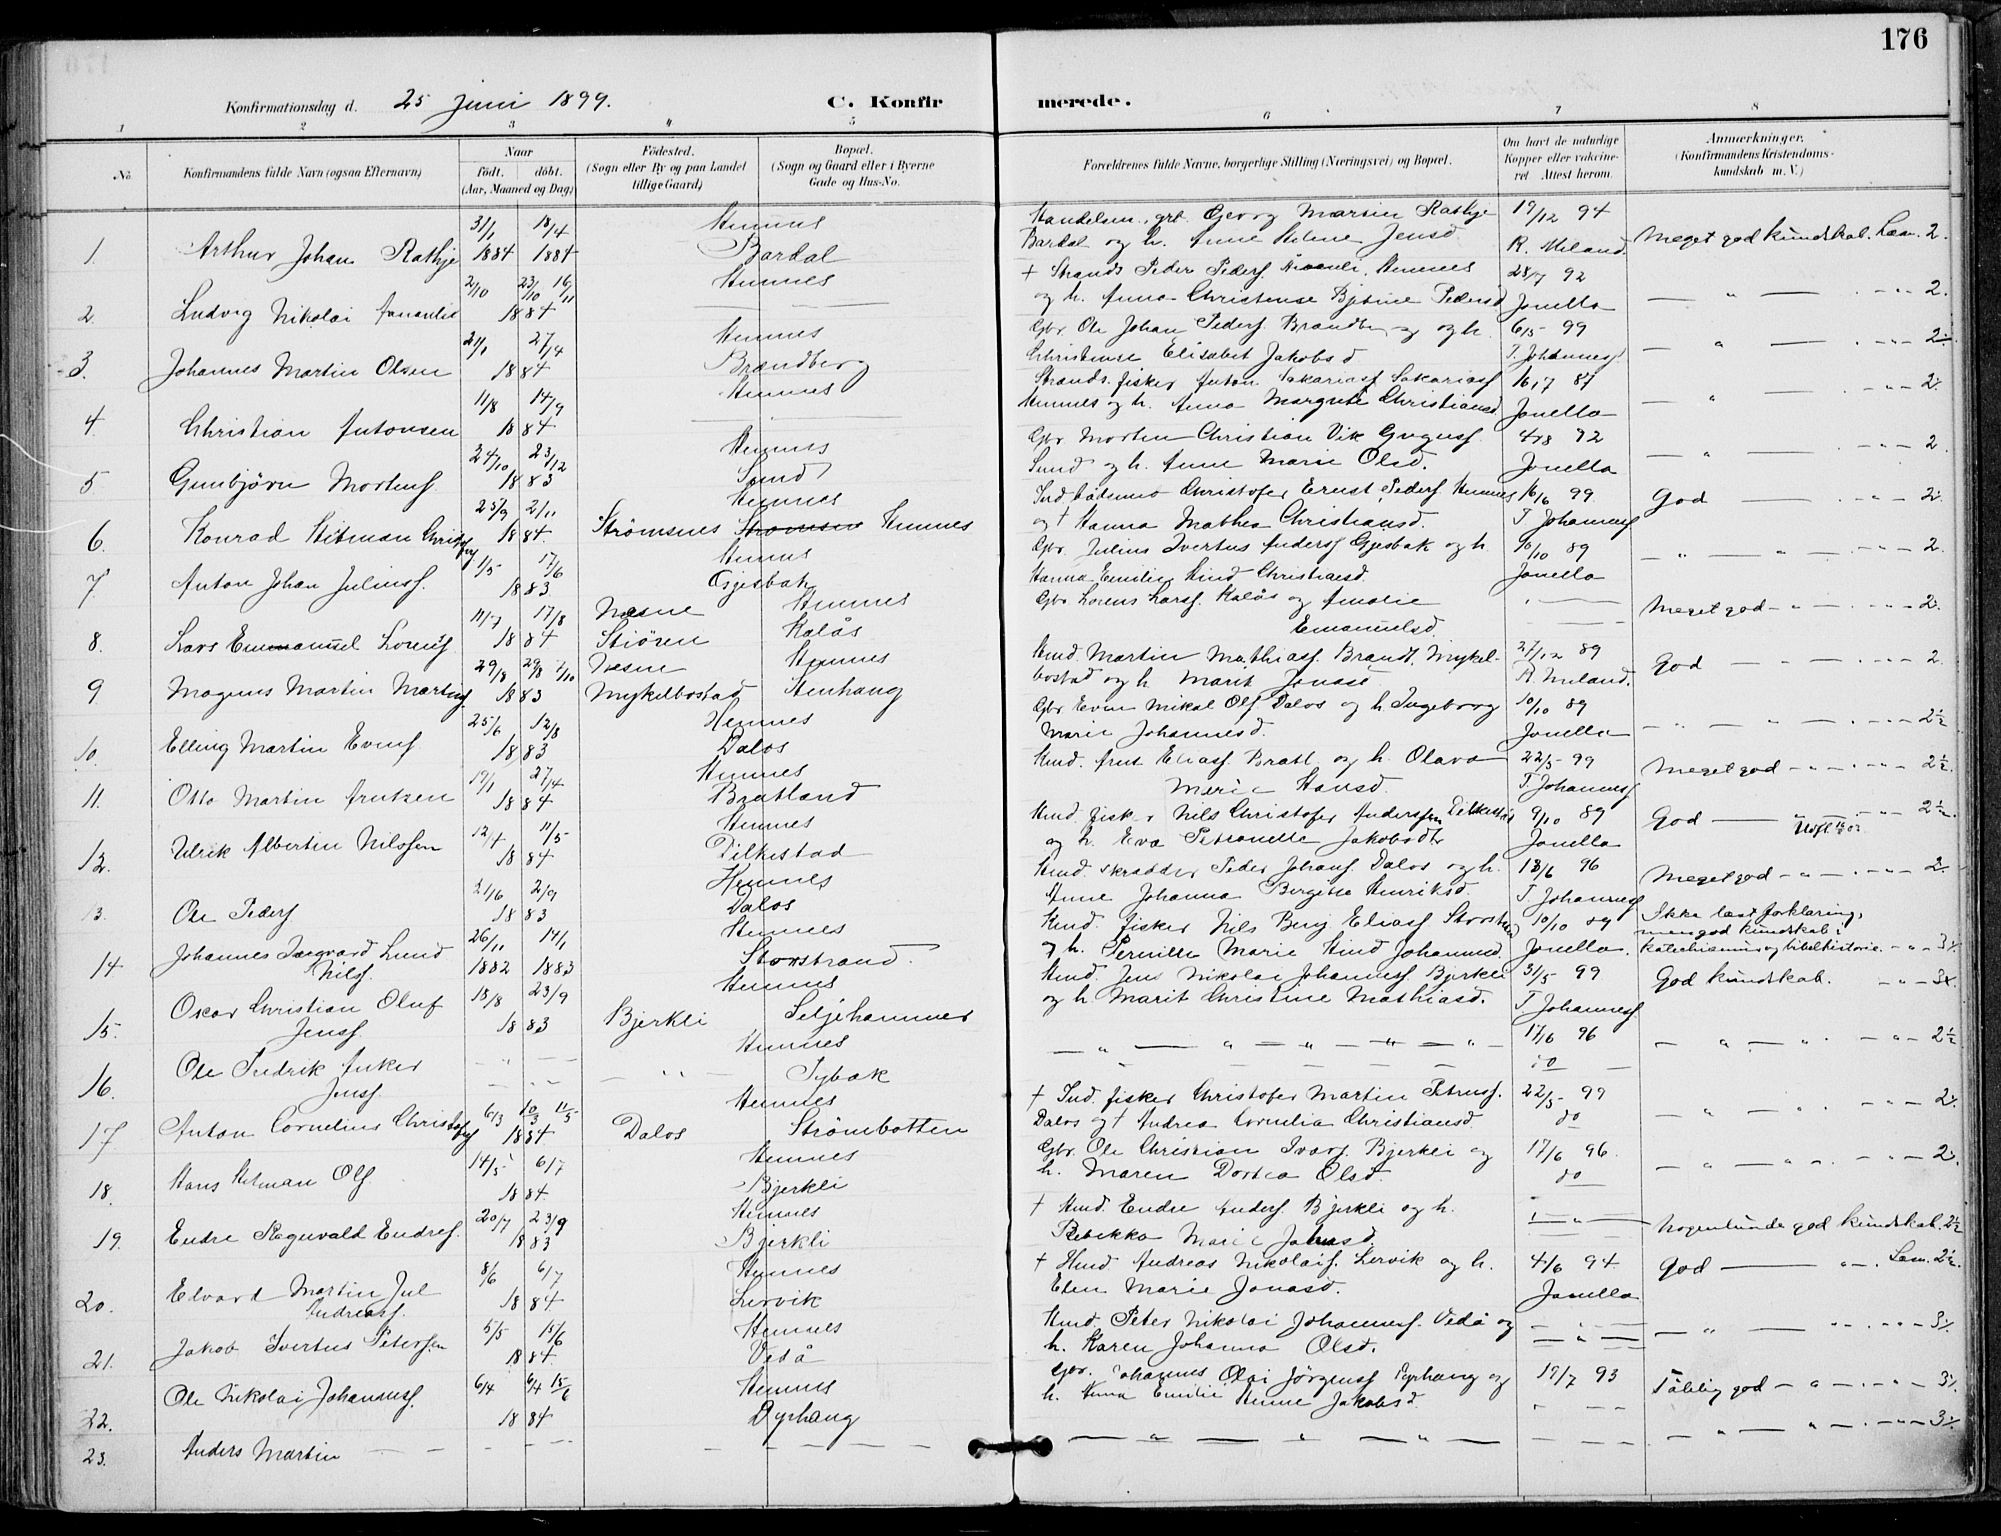 176
Konfirmationsdag d. 25 Juni 1899. C. Konfirmerede.
1 2 3 4 5 6 7 8
No.
Konfirmandens fulde Navn (ogsaa Efternavn)
Naar født. døbt. (Aar, Maaned og Dag)
Fødested. (Sogn eller By og paa Landet tillige Gaard)
Bopæl. (Sogn og Gaard eller i Byerne Gade og Hus-No.
Forældrenes fulde Navne, borgerlige Stilling (Næringsvei) og Bopæl.
Om havt de naturlige Kopper eller vakcineret Attest herom.
Anmærkninger. (Konfirmandens Kristendomskundskab m. V.)
31/1 18/4 Hemnes Georg Martin Rathje 19/12 94
1. Arthur Johan Rathje 1884 1884 Bardal Bardal og h. Anne Helene Jensd. R. Meland. Meget god kundskab. Læsn. 2.
2/10 23/10 16/11 Hemnes + Strands. Peder Peders. Hemnes 28/7 92
2. Ludvig Nikolai 1884 og h. Anna Christense Pedersd. Jonella 2.
21/1 27/4 Hemnes Gbr. Ole Johan Peders. Brandberg og h. 6/5 99
3. Johannes Martin Olsen 1884 Brandberg Christense Elisabet Jakobsd. T. Johannes.
11/8 14/9 Hemnes Strands. fisker Anton Sakarias. Sakarias. 16/7 87
4. Christian Antonsen 1884 Hemnes og h. Anna Margrete Christiansd. Jonella
24/10 23/12 Hemnes Gbr. Morten Christian Vik 4/8 92
5 Gunbjørn Mortens. 1883 Sund Sund og h. Anne Marie Olsd. Jonella 2
25/9 2/11 Hemnes Christofer Ernst Peders. Hemnes 16/6 99 God 2
6. Konrad Hitman Christofs. 1884 Strømsnes Hemnes og + Hanna Mathea Christiansd. T Johannes.
1/5 17/6 Hemnes Gbr. Julius Ivertus Anders. Gjesbak og h. 10/10 89 2.
7. Anton Johan Julius. 1883 Gjesbak Hanna Emilie Hind Christiansd. Jonella
11/7 17/8 Næsne Hemnes Gbr Lorens Lars. Kalås og Amalie Meget god 2.
8. Lars Emanuel Lorents. 1884 Stiören Kalås Emanuelsd.
29/8 29/8 7/10 Nesne Hemnes Hmd. Martin Mathias. Brandt, Mykel- 27/12 89 God 2.
9 Magnus Martin Martins. 1883 Mykelbostad Stenhaug bostad og h. Marit Jonasd. R Meland.
25/6 12/8 Hemnes Gbr Even Mikal Ols. Dalos og h. Ingeborg 10/10 89 2½
10. Elling Martin Evens. 1883 Dalos Marie Johannesd. Jonella
19/1 27/4 Hemnes Hmd. Arnt Elias. Bratl. og h. Olava 22/5 99 Meget god 2½.
11. Otto Martin Arntsen 1884 Bratland Merie Hansd. T. Johannes.
12/4 11/5 Hemnes Hmd. fisker Nils Christofer Anderssen Dilkestad 9/10 89 God 2½
12. Ulrik Albertin Nilssen 1884 Dilkestad og h. Eva Petronelle Jakobsdtr Jonella
21/6 2/9 Hemnes Hmd. skrædder Peder Johans. Dalos og h. 18/6 96 Meget god 2
13. Ole Peders. 1883 Dalos Anne Johanna Bergitte Henriksd. T. Johannes.
26/11 14/1 Hemnes Hmd. fisker Nils Berg Elias. Storstrand 10/10 89 Ikke læst forklaring,
14 Johannes Ingvard Lund Nils. 1882 1883 Storstrand. og h. Pernille Marie Hind Johannesd. Jonella. men god kundskab i katechismus og bibelhistorie.
18/8 23/9 Hemnes Hmd. Jens Nikolai Johannes. Bjerkli 31/5 99 God kundskab.
15. Oscar Christian Oluf Jens. 1883 Bjerkli Seljehammer og h. Marit Christine Mathiasd. T Johannes.
Hemnes 17/6 96 2½
16. Ole Fredrik Anker Jens. Sybak do
6/3 10/3 11/5 Hemnes + Ind. fisker Christofer Martin Petrus. 22/5 99
17. Anton Cornelius Christofs. 1884 Dalos Strømbotten Dalos og + Andrea Cornelia Christiansd. do
14/5 6/7 Hemnes Gbr. Ole Christian Ivars. Bjerkli og 17/6 96. 2.
18. Hans Hitman Ols. 1884. Bjerkli h. Maren Dortea Olsd. do
20/7 23/9 Hemnes + Hmd. Endre Anders. Bjerkli og h.
19. Endre Regnvald Endres. 1883 Bjerkli Rebekka Marie Nogenlunde god kundskab. 2½
8/6 6/7 Hemnes + Hmd Andreas Nikolais. Lervik og h. 4/6 94 God Læsn. 2½.
20. Edvard Martin Jul Andreas. 1884 Lervik Elen Marie Jonasd. Jonella
5/5 15/6 Hemnes Hmd. Peter Nikolai Johannes. Vedå og
21. Jakob Ivertus Petersen 1884. Vedå h. Karen Johanna Olsd.
6/4 6/4 15/6 Hemnes Gbr. Johannes Olai Jørgens. Dyrhaug og 19/7 93 Tålelig god
22. Ole Nikolai Johannes. 1884 Dyrhaug h. Anna Emilie Jakobsd.
23. Anders Martin